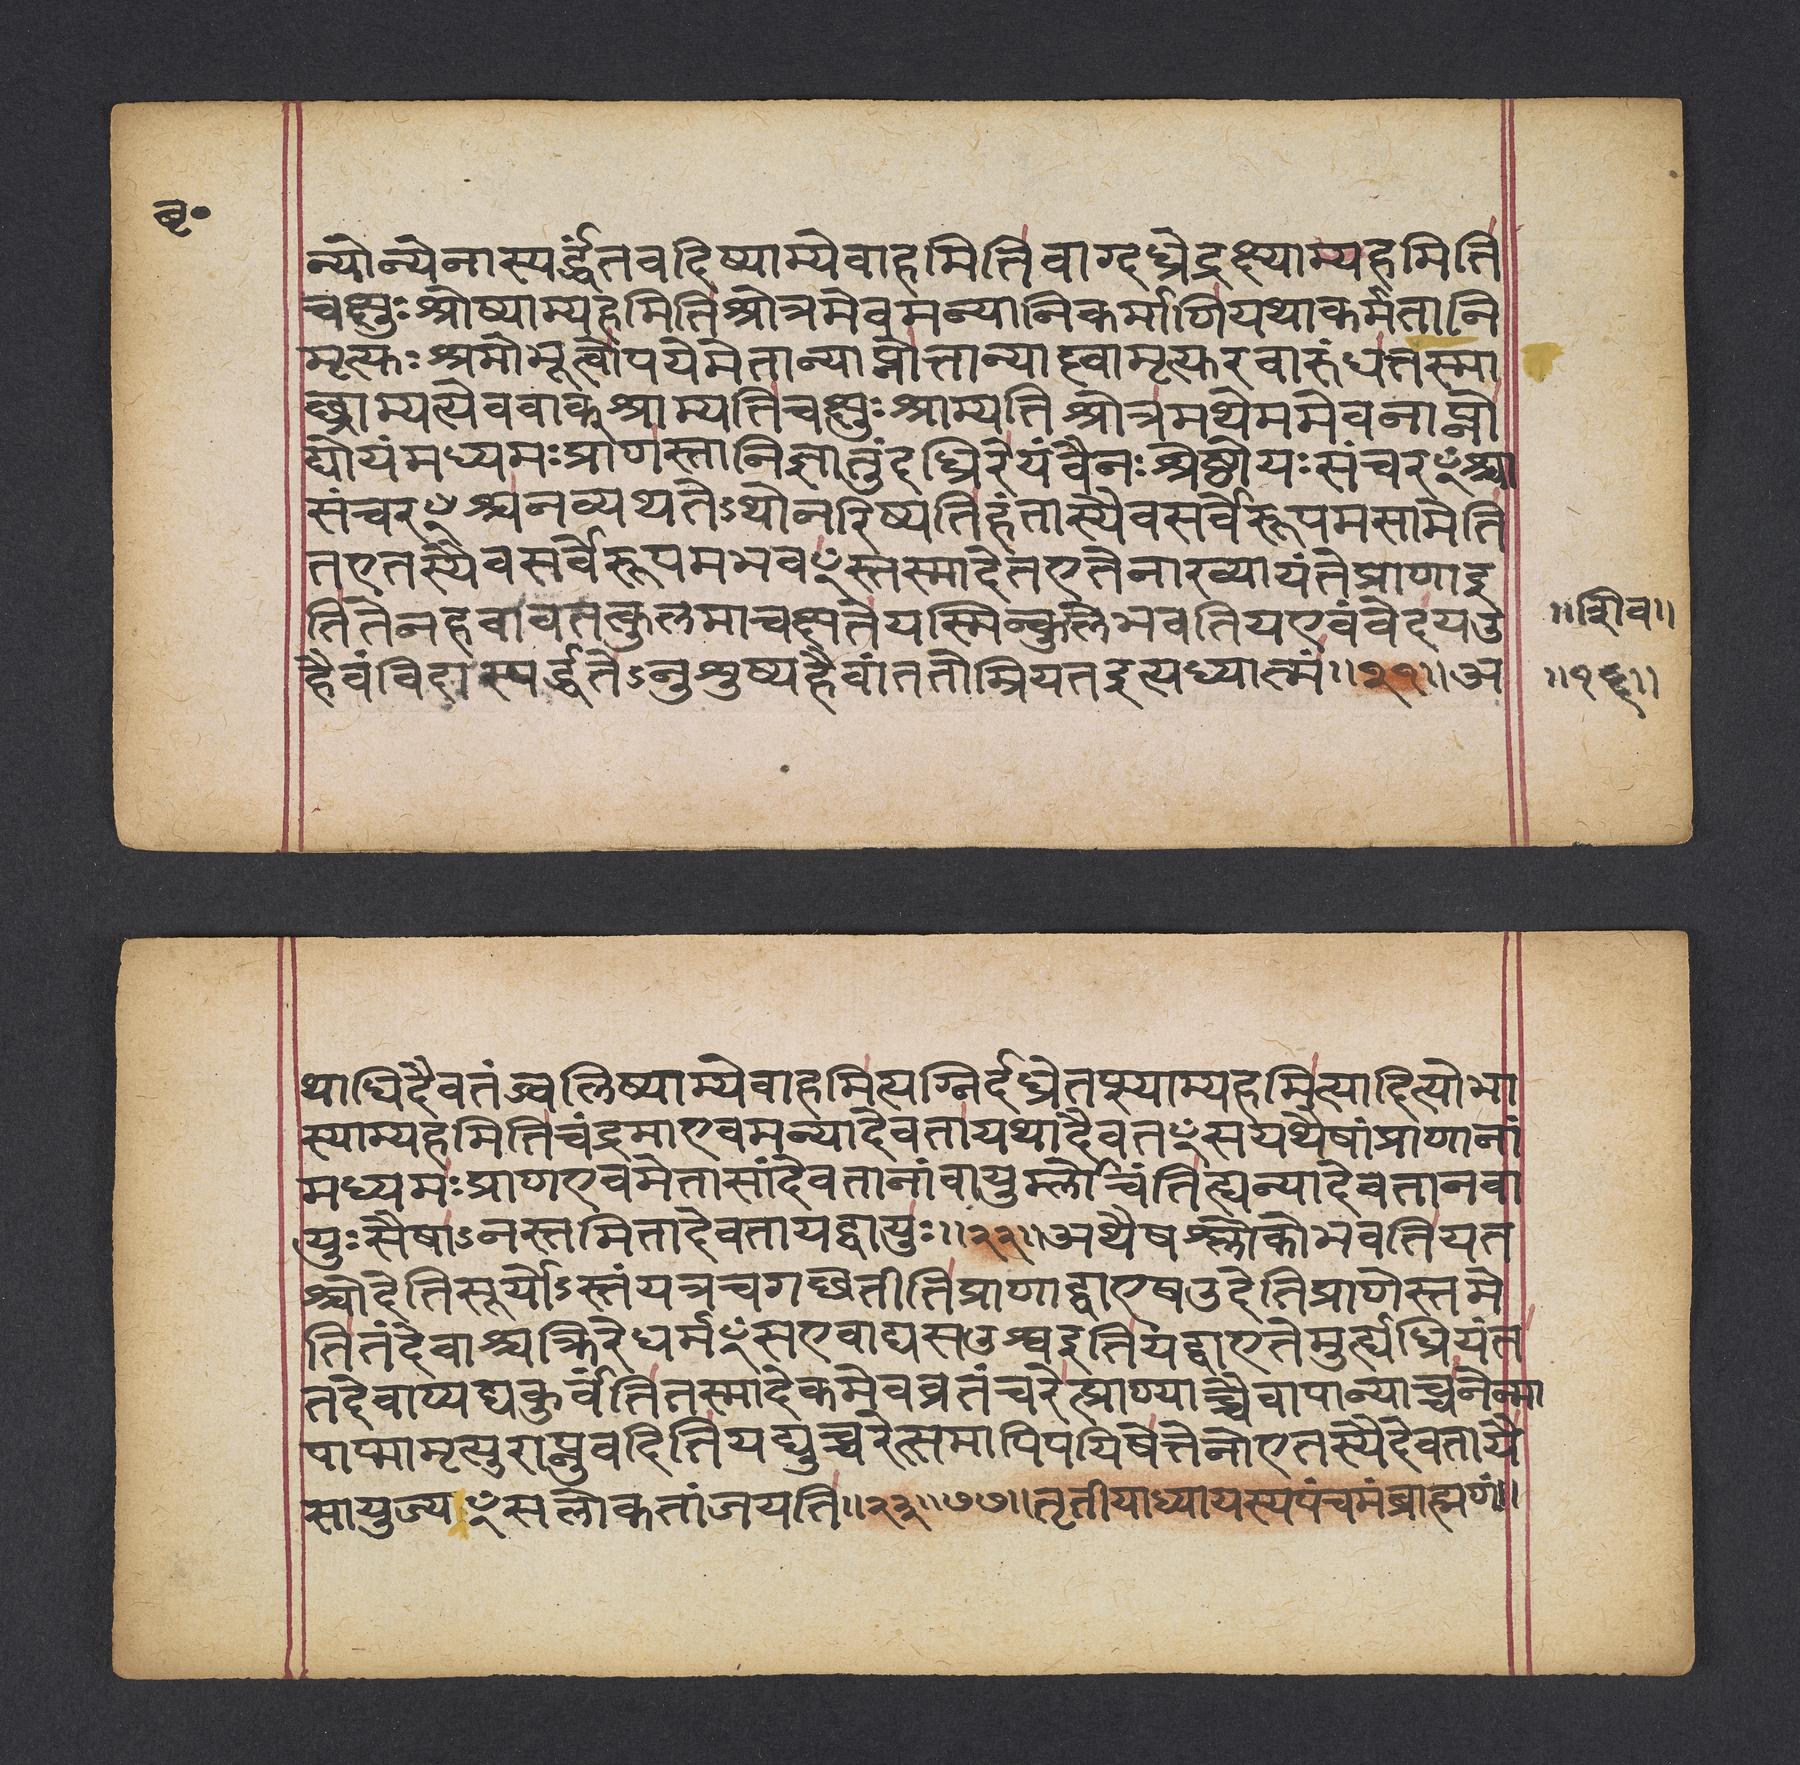 बृ॰
न्योन्येनास्पर्द्धंतवदिष्याम्येवाहमितिवाग्दध्रेद्रक्ष्याम्यहमिति
चक्षुःश्रोष्याम्यहमितिश्रोत्रमेवमन्यानिकर्माणियथाकर्मतानि
मृत्युःश्रमोभूत्वोपयेमेतान्याप्नोत्तान्याप्त्वामृत्युरवारुंधतस्मा
छ्राम्यत्येववाक्श्राम्यतिचक्षुःश्राम्यतिश्रोत्रमथेममेवनाप्नो
द्योयंमध्यमःप्राणस्तानिज्ञातुंदध्रिरेयंवैनःश्रेष्ठोयःसंचरꣳश्चा
संचरꣳश्चनव्यथतेऽथोनरिष्यतिहंतास्यैवसर्वेरूपमसामेति
तएतस्यैवसर्वेरूपमभवꣳस्तस्मादेतएतेनाख्यायंतेप्राणाइ
तितेनहवावतत्कुलमाचक्षतेयस्मिन्कुलेभवतियएवंवेदयउ
हैवंविदास्पर्द्धतेऽनुशुष्यहैवांततोम्रियतइत्यध्यात्मं॥२१॥अ
॥शिव॥
॥१६॥
थाधिदैवतंज्वलिष्याम्येवाहमित्यग्निर्दध्रेतप्स्याम्यहमित्यादित्योभा
स्याम्यहमितिचंद्रमाएवमन्यादेवतायथादैवतꣳसयथैषांप्राणानां
मध्यमःप्राणएवमेतासांदेवतानांवायुर्म्लोचंतिह्यन्यादेवतानवा
युःसैषाऽनस्तमितादेवतायद्वायुः॥२२॥अथैषश्लोकोभवतियत
श्चोदेतिसूर्योऽस्तंयत्रचगछतीतिप्राणाद्वाएषउदेतिप्राणेस्तमे
तितंदेवाश्चक्रिरेधर्मꣳसएवाद्यसउश्वइतियद्वाएतेमुर्ह्यध्रियंत
तदेवाप्यद्यकुर्वंतितस्मादेकमेवव्रतंचरेत्प्राण्याच्चैवापान्याच्चनेन्मा
पाप्मामृत्युराप्नुवदितियद्युच्चरेत्समापिपयिषेत्तेनोएतस्यैदेवतायै
सायुज्यꣳसलोकतांजयति॥२३॥७७॥तृतीयाध्यायस्यपंचमंब्राह्मणं॥